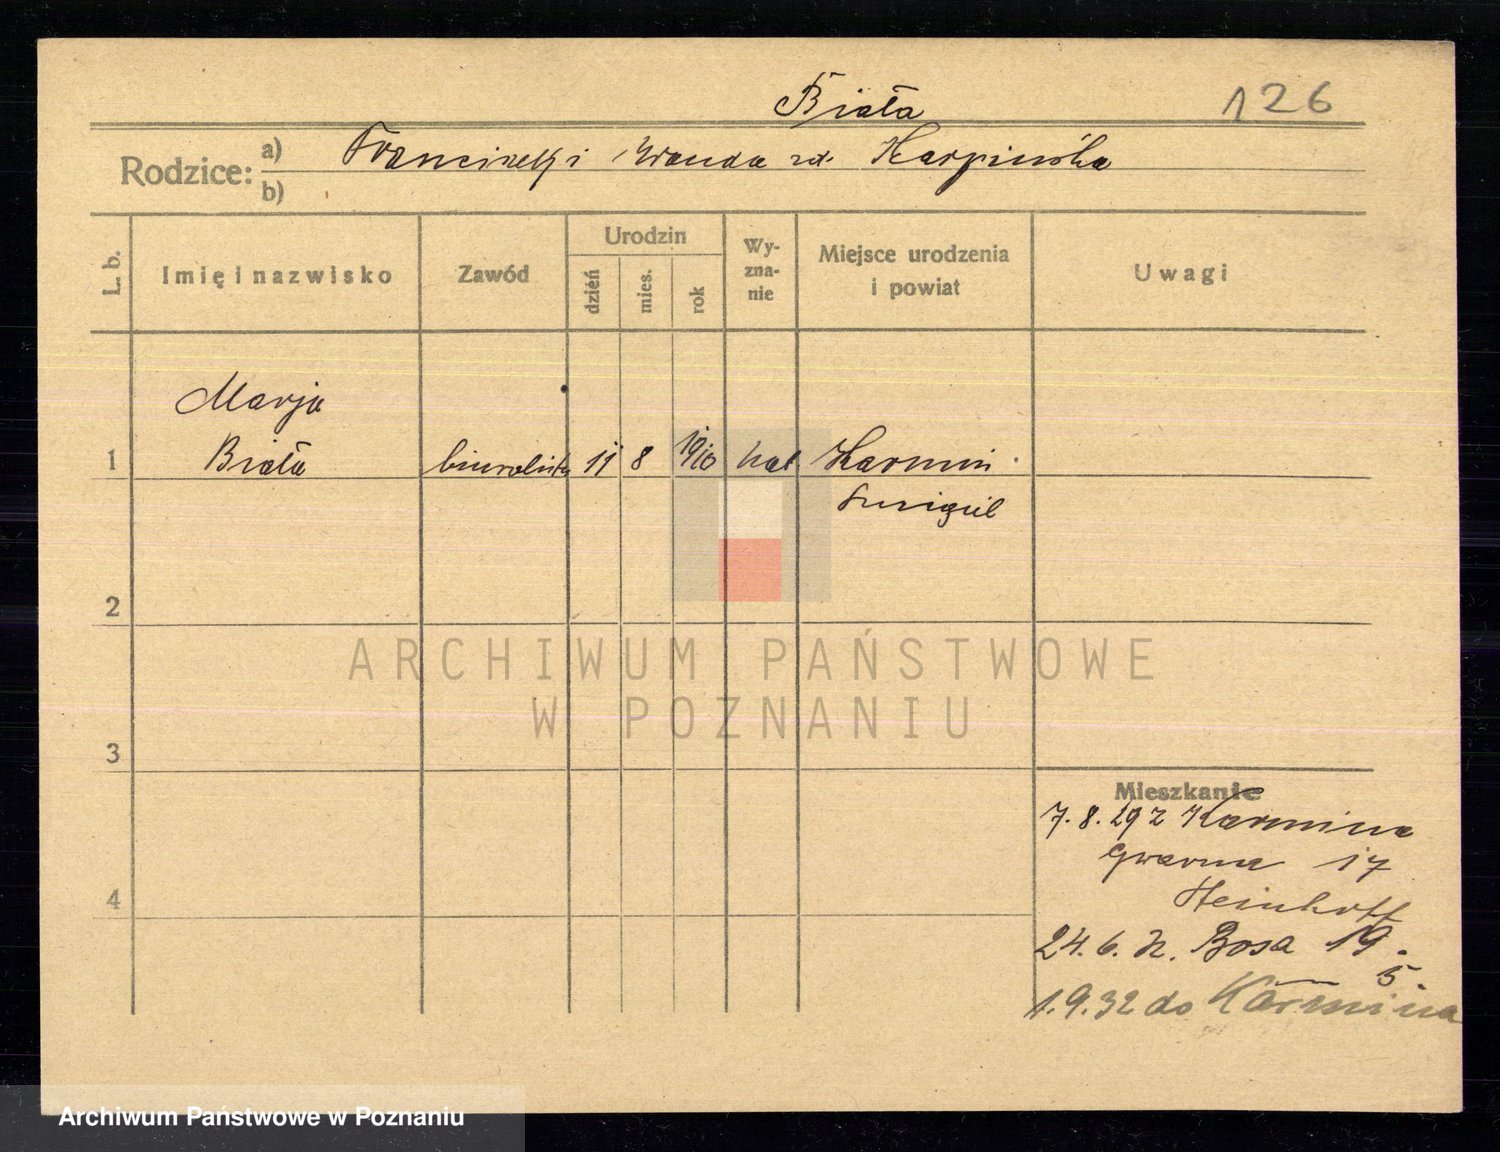 Biała 126
Rodzice: a) Franciszek i Wanda zd. Karpińska
b)
L. b. Imię i nazwisko Zawód Urodzin dzień mies. rok Wy-zna-nie Miejsce urodzenia i powiat Uwagi
Marja
1 Biała biuralistka 11 8 1910 kat Karmin
Śmigiel
2
3
4
Mieszkanie
7.8.29 z Karmina
Gwarna 17
Heinhoff
24.6. Bosa 19.
5.
1.9.32 do Karmina
ARCHIWUM PAŃSTWOWE
W POZNANIU
Archiwum Państwowe w Poznaniu